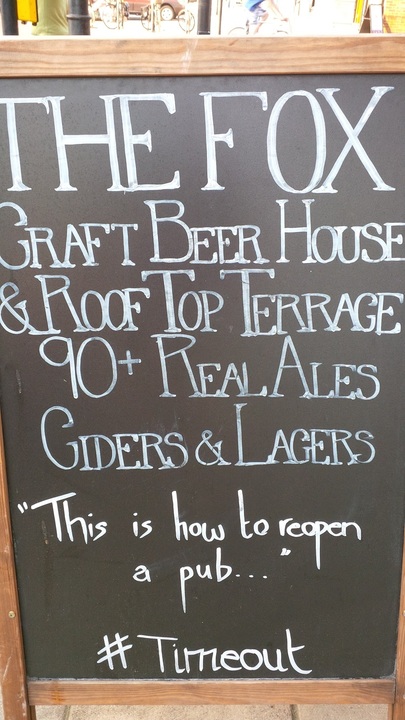 THE FOX
CRAFT BEER HOUSE
& ROOF TOP TERRAGE
90+ REAL ALES
CIDERS & LAGERS
"This is how to reopen
a pub..."
# Timeout